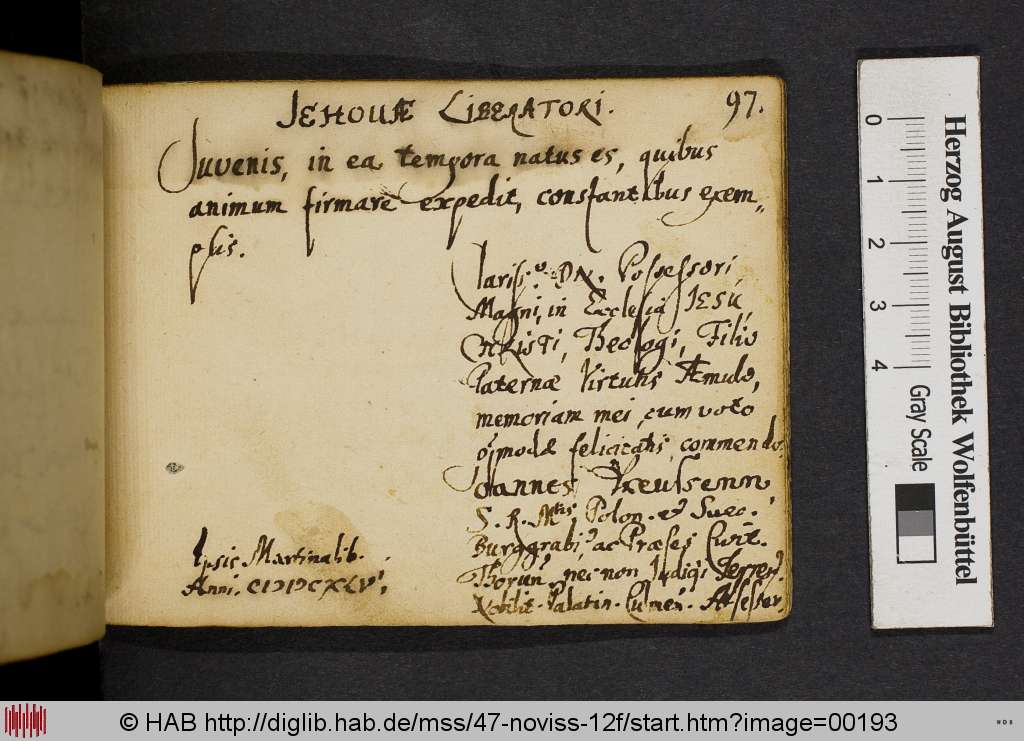 JEHOVÆ LIBERATORI.
97.
Iuvenis, in ea tempora natus es, quibus
animum firmare expedit, constantibus exem„
plis.
Clariss.º DN. Possessori
Magni, in Ecclesia IESU
CHRISTI, Theologi, Filio
Paternæ Virtutis Æmulo,
memoriam mei, cum voto
oĩmodæ felicitatis, commendo.
Ioannes Preussenn
S. R. Mtis Polon. et Suec.
Burggrabi9 ac Præses Civit.
Thorun. nec non Judicij Terrer.
Nobilit. Palatin. Culmen. Assessor.
Ipsis Martinalib.
Anni. CIƆIƆCXLV.
0
1
2
3
4
Herzog August Bibliothek Wolfenbüttel
Gray Scale
© HAB http://diglib.hab.de/mss/47-noviss-12f/start.htm?image=00193